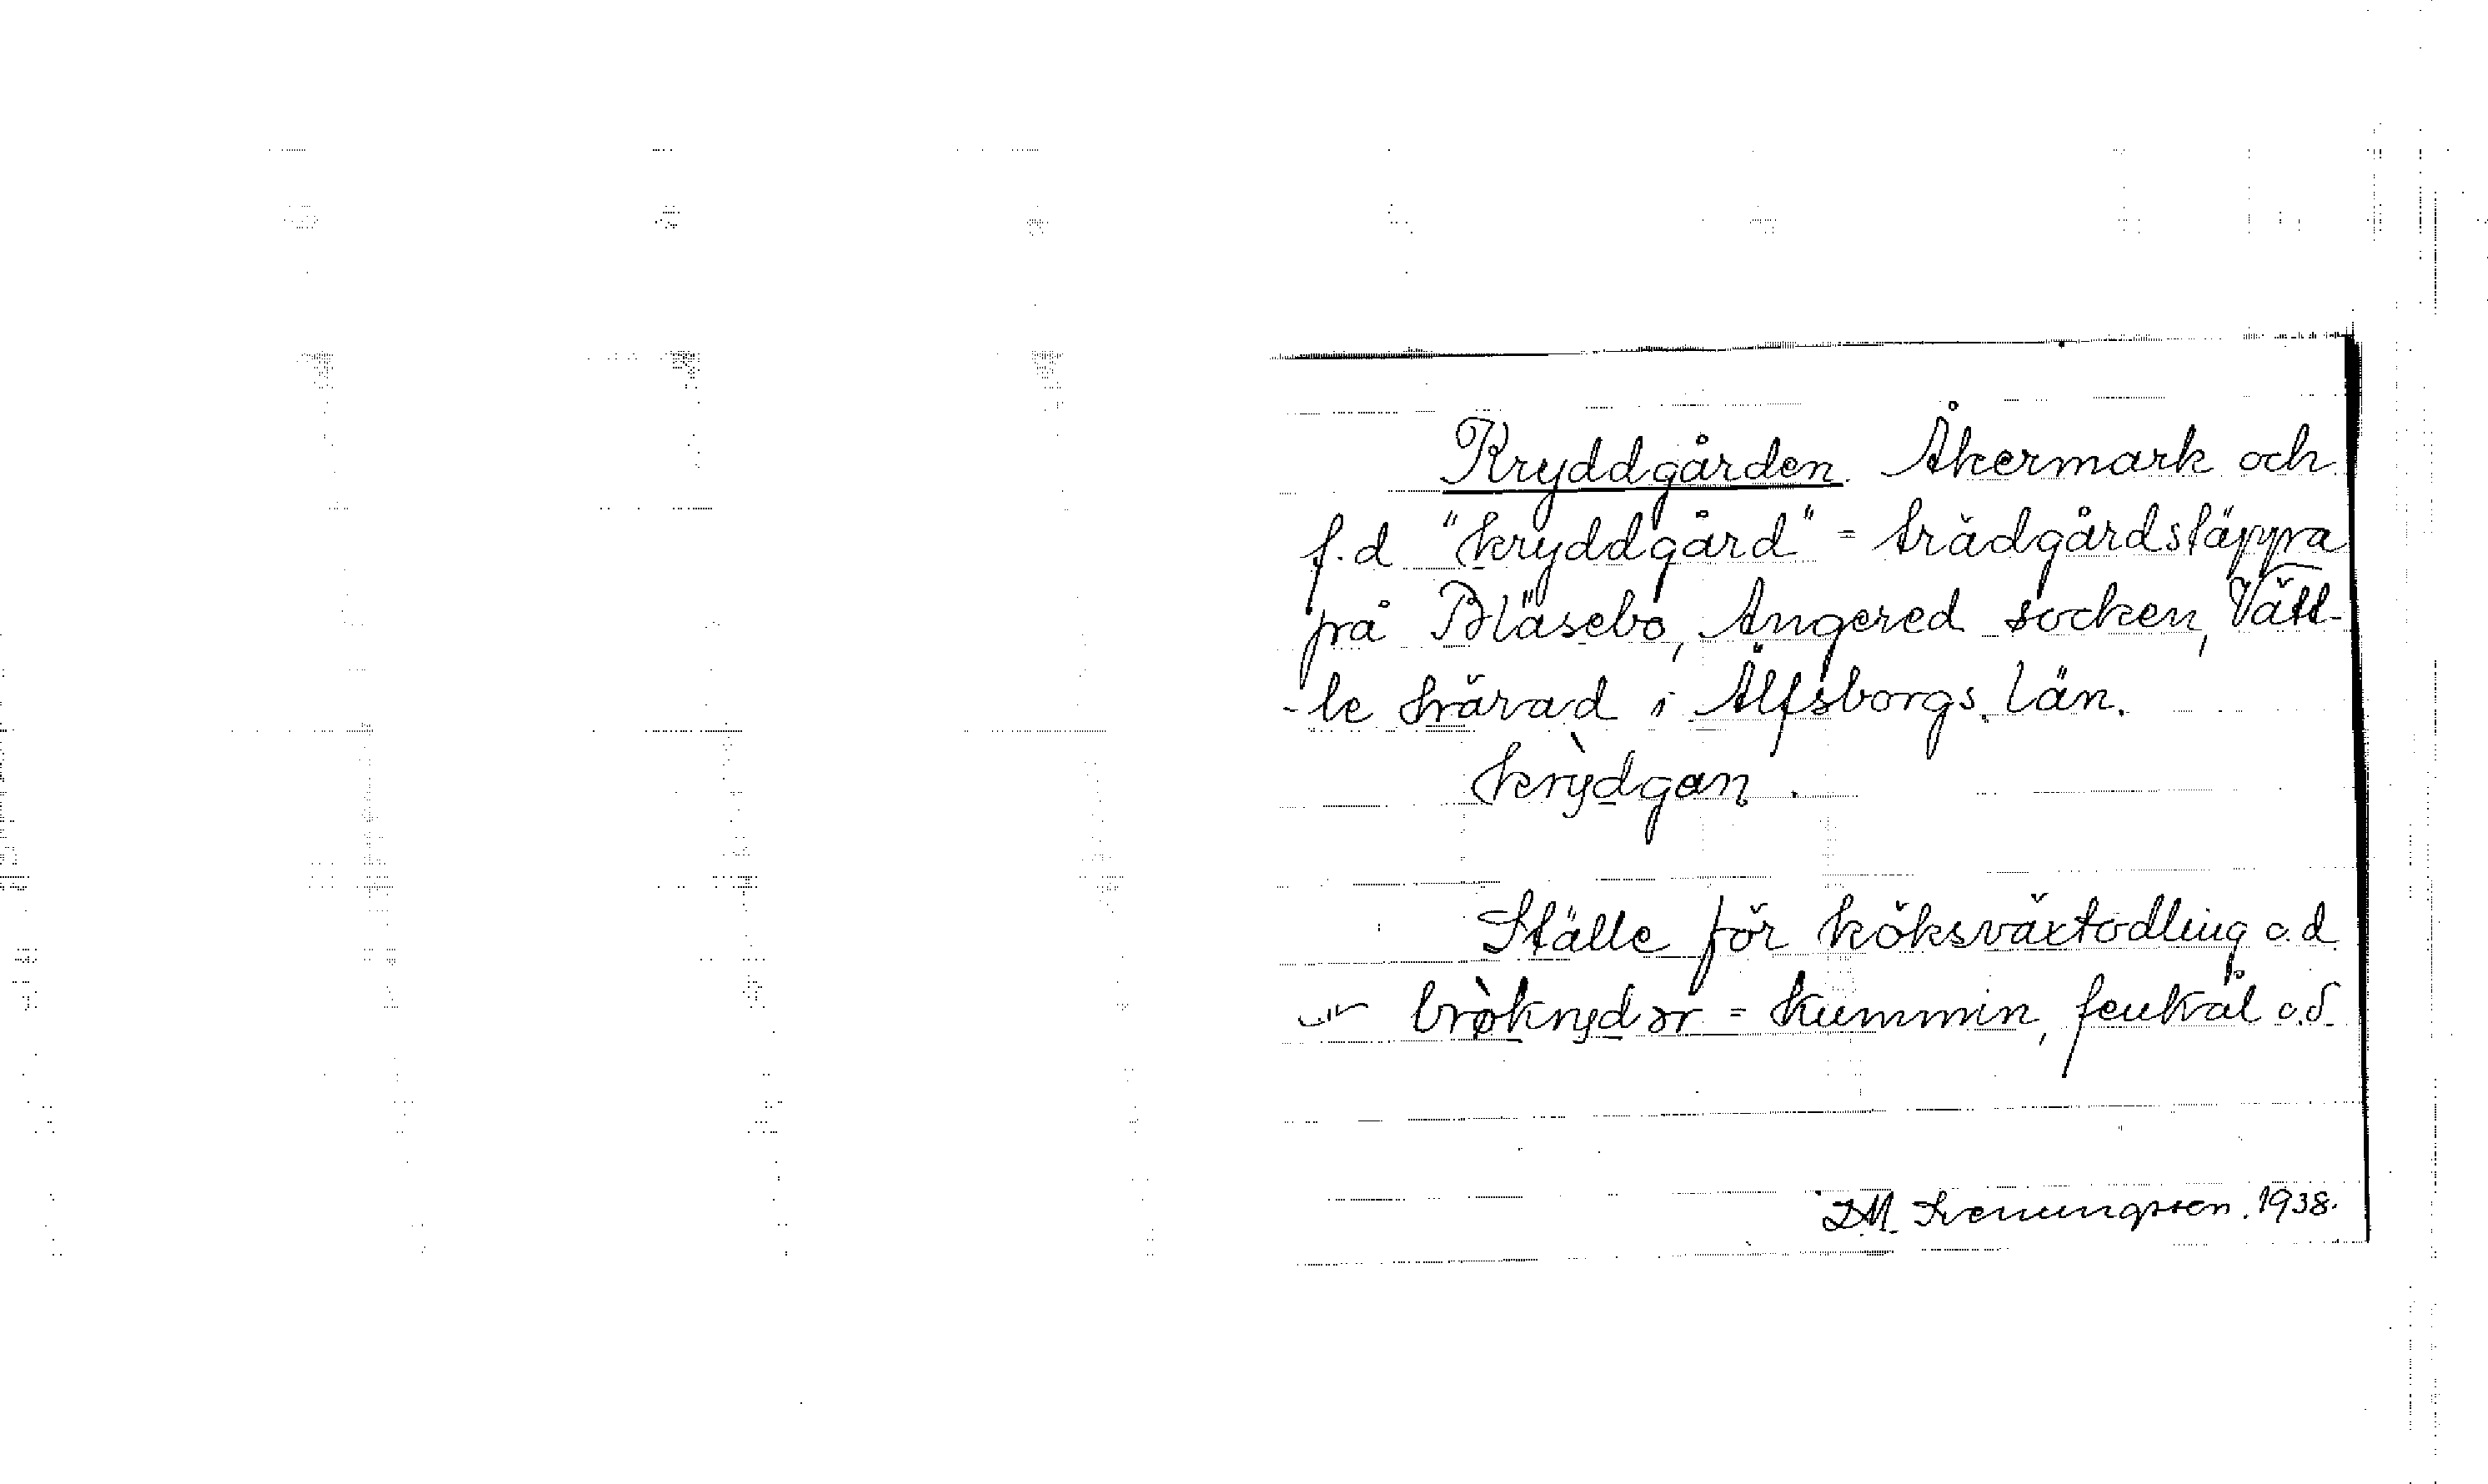 Kryddgården. Åkermark och
f.d "kryddgård" = trädgårdstäppa
på Bläsebo, Angered socken, Vätt-
-le härad i Älfsborgs län.
krỳdgan.
Ställe för köksväxtodling o.d
brø̀krydər = kummin, fenkål o.d
1938.